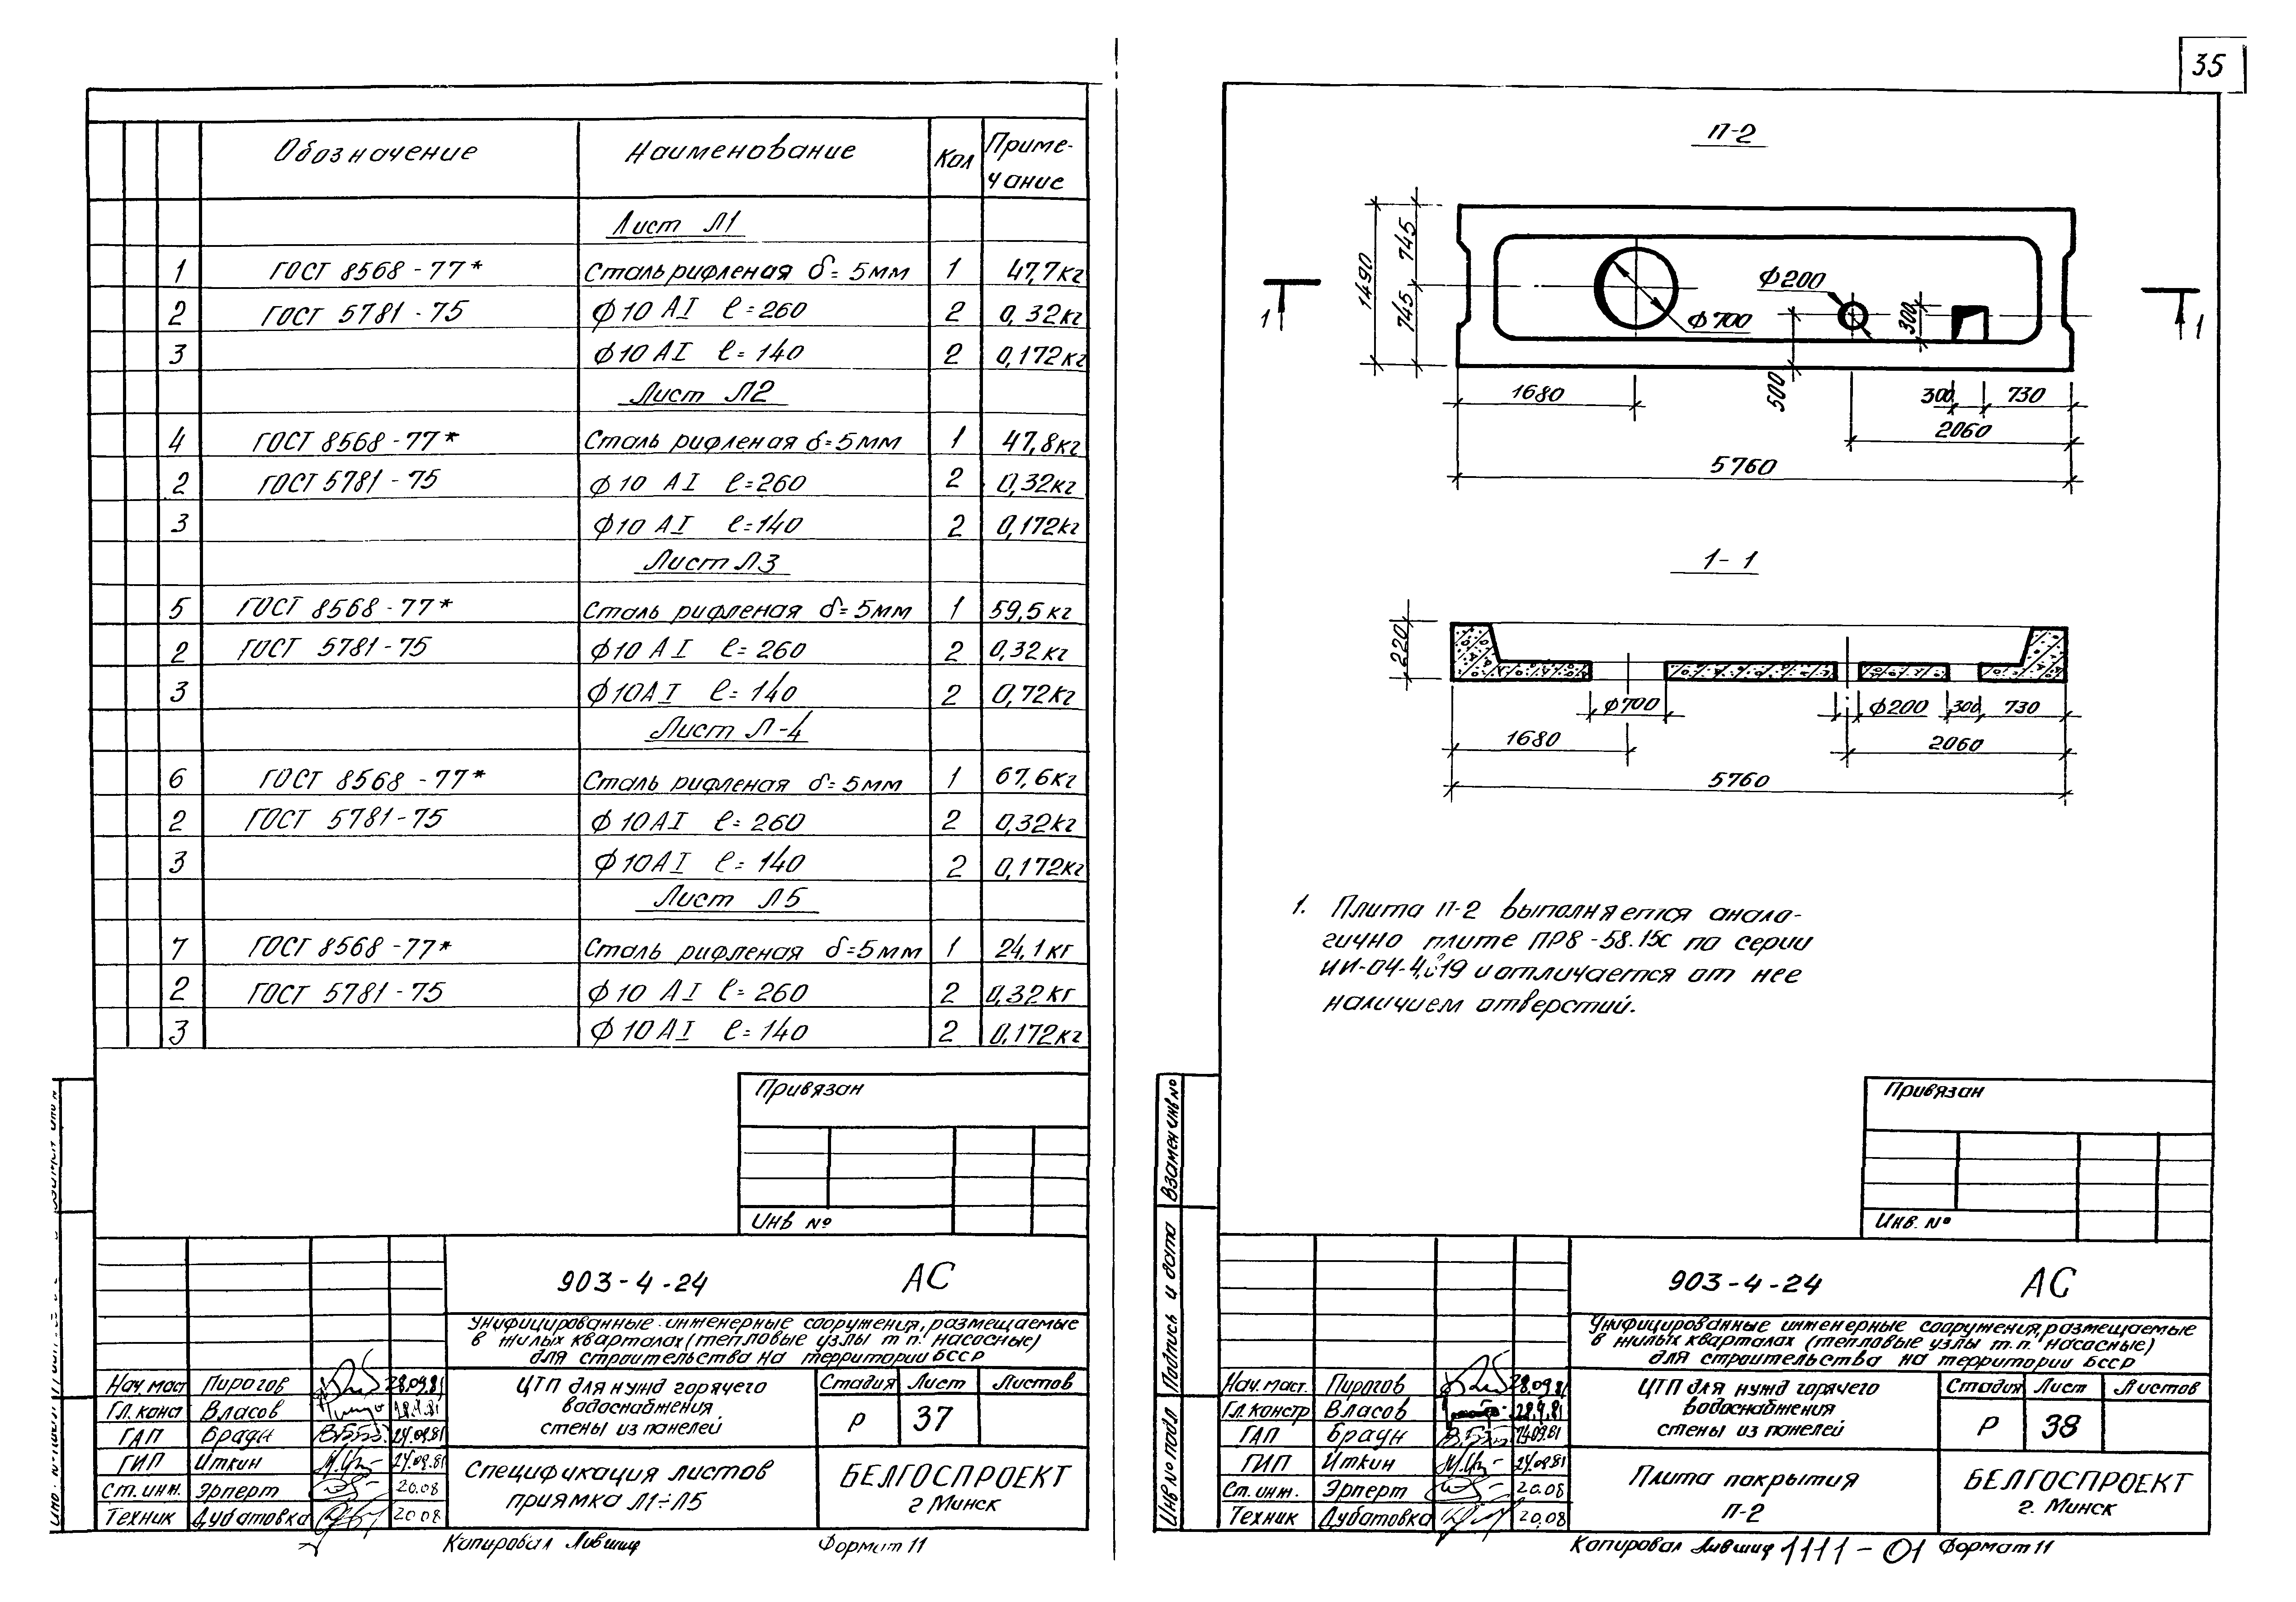 35
Обозначение Наименование Кол Приме-
чание
Лист Л1
1 ГОСТ 8568-77* Сталь рифленая δ=5мм 1 47,7кг
2 ГОСТ 5781-75 ф10 АI ℓ=260 2 0,32кг
3 ф10 АI ℓ=140 2 0,172кг
Лист Л2
4 ГОСТ 8568-77* Сталь рифленая δ=5мм 1 47,8кг
2 ГОСТ 5781-75 ф10 АI ℓ=260 2 0,32кг
3 ф10 АI ℓ=140 2 0,172кг
Лист Л3
5 ГОСТ 8568-77* Сталь рифленая δ=5мм 1 59,5кг
2 ГОСТ 5781-75 ф10 АI ℓ=260 2 0,32кг
3 ф10АI ℓ=140 2 0,72кг
Лист Л-4
6 ГОСТ 8568-77* Сталь рифленая δ=5мм 1 67,6кг
2 ГОСТ 5781-75 ф10АI ℓ=260 2 0,32кг
3 ф10АI ℓ=140 2 0,172кг
Лист Л5
7 ГОСТ 8568-77* Сталь рифленая δ=5мм 1 24,1кг
2 ГОСТ 5781-75 ф10 АI ℓ=260 2 0,32кг
3 ф10АI ℓ=140 2 0,172кг
Привязан
Инв №
903-4-24 АС
Унифицированные инженерные сооружения, размещаемые
в жилых кварталах (тепловые узлы т.п. насосные)
для строительства на территории БССР
Нач.маст Пирогов 28.09.81
Гл.конст Власов 28.9.81
ГАП Браун 24.09.81
ГИП Иткин 24.09.81
Ст.инж. Эрперт 20.08
Техник Дубатовка 20 08
ЦТП для нужд горячего
водоснабжения
стены из панелей
Стадия Лист Листов
Р 37
Спецификация листов
приямка Л1÷Л5
БЕЛГОСПРОЕКТ
г Минск
Копировал Лившиц Формат 11
П-2
1490 745 745
Ф200
Ф700
300
500
1 1
1680 300 730
2060
5760
1-1
220
Ф700 Ф200 300 730
1680 2060
5760
1. Плита П-2 выполняется анало-
гично плите ПР8-58.15с по серии
ИИ-04-4, 19 и отличается от нее
наличием отверстий.
Взамен инв №
Подпись и дата
Инв № подл
Привязан
Инв. №
903-4-24 АС
Унифицированные инженерные сооружения, размещаемые
в жилых кварталах (тепловые узлы т.п. насосные)
для строительства на территории БССР
Нач.маст. Пирогов 28.09.81
Гл.констр Власов 28.9.81
ГАП Браун 24.09.81
ГИП Иткин 24.09.81
Ст.инж. Эрперт 20.08
Техник Дубатовка 20.08
ЦТП для нужд горячего
водоснабжения
стены из панелей
Стадия Лист Листов
Р 38
Плита покрытия
П-2
БЕЛГОСПРОЕКТ
г. Минск
Копировал Лившиц 1111-01 Формат 11